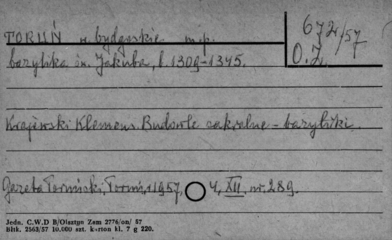 TORUŃ w. bydgoskie m.p. 672/57
O.Z.
bazylika św. Jakuba, l. 1309-1345.
Krajewski Klemens. Budowle sakralne - bazyliki.
Gazeta Toruńska, Toruń, 1957, 4, XII, nr. 289.
Jedn. C.W.D B/Olsztyn Zam 2776/on/ 57
Bltk. 2563/57 10.000 szt. karton kl. 7 g 220.